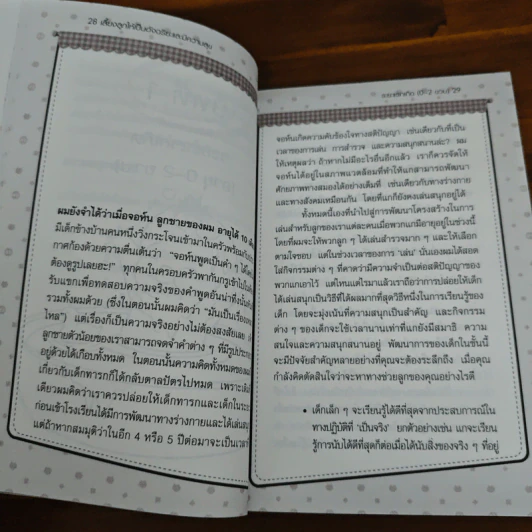 28 เลี้ยงลูกให้เป็นอัจฉริยะและมีความสุข
ผมยังจำได้ว่าเมื่อจอห์น ลูกชายของผม อายุได้ 10
มีเด็กข้างบ้านคนหนึ่งวิ่งกระโจนเข้ามาในครัวพร้อมกับ
กาศก้องด้วยความตื่นเต้นว่า “จอห์นพูดเป็นคำ ๆ ได้
ต้องดูรูปเลยฮะ!” ทุกคนในครอบครัวพากันกรูเข้าไปใน
รับแขกเพื่อทดสอบความจริงของคำพูดอันน่าทึ่ง
รวมทั้งผมด้วย (ซึ่งในตอนนั้นผมคิดว่า “มันเป็นเรื่อง
ไหล”) แต่เรื่องก็เป็นความจริงอย่างไม่ต้องสงสัยเลย
ลูกชายตัวน้อยของเราสามารถจดจำคำต่าง ๆ ที่มีรูป
อยู่ด้วยได้เกือบทั้งหมด ในตอนนั้นความคิดทั้งหมดของ
เกี่ยวกับเด็กทารกก็ได้กลับตาลปัตรไปหมด เพราะ
เดียวผมคิดว่าเราควรปล่อยให้เด็กทารกและเด็กใน
ก่อนเข้าโรงเรียนได้มีการพัฒนาทางร่างกายและได้เล่น
แต่ถ้าหากสมมุติว่าในอีก 4 หรือ 5 ปีต่อมาจะเป็นเวลา
29
จอห์นเกิดความคับข้องใจทางสติปัญญา เช่นเดียวกับที่เป็น
เวลาของการเล่น การสำรวจ และความสนุกสนานล่ะ? ผม
ให้เหตุผลว่า ถ้าหากไม่มีอะไรอื่นอีกแล้ว เราก็ควรจัดให้
จอห์นได้อยู่ในสภาพแวดล้อมที่ทำให้แกสามารถพัฒนา
ศักยภาพทางสมองได้อย่างเต็มที่ เช่นเดียวกับทางร่างกาย
และทางสังคมเหมือนกัน โดยที่แกก็ยังคงเล่นสนุกอยู่ได้
ทั้งหมดนี้เองที่นำไปสู่การพัฒนาโครงสร้างในการ
เล่นสำหรับลูกของเราแต่ละคนเมื่อพวกแกมีอายุอยู่ในช่วงนี้
โดยที่ผมจะให้พวกลูก ๆ ได้เล่นสำรวจมาก ๆ และให้เลือก
ตามใจชอบ แต่ในช่วงเวลาของการ ‘เล่น’ นั่นเองผมได้สอด
ใส่กิจกรรมต่าง ๆ ที่คาดว่ามีความจำเป็นต่อสติปัญญาของ
พวกแกเอาไว้ แต่ไหนแต่ไรมาแล้วเราถือว่าการปล่อยให้เด็ก
ได้เล่นสนุกเป็นวิธีที่ได้ผลมากที่สุดวิธีหนึ่งในการเรียนรู้ของ
เด็ก โดยจะมุ่งเน้นที่ความสนุกเป็นสำคัญ และกิจกรรม
ต่าง ๆ ของเด็กจะใช้เวลานานเท่าที่แกยังมีสมาธิ ความ
สนใจและความสนุกสนานอยู่ พัฒนาการของเด็กในชั้นนี้
จะมีปัจจัยสำคัญหลายอย่างที่คุณจะต้องระลึกถึง เมื่อคุณ
กำลังคิดตัดสินใจว่าจะหาทางช่วยลูกของคุณอย่างไรดี
• เด็กเล็ก ๆ จะเรียนรู้ได้ดีที่สุดจากประสบการณ์ใน
ทางปฏิบัติที่ ‘เป็นจริง’ ยกตัวอย่างเช่น แกจะเรียน
รู้การนับได้ดีที่สุดก็ต่อเมื่อได้นับสิ่งของจริง ๆ ที่อยู่